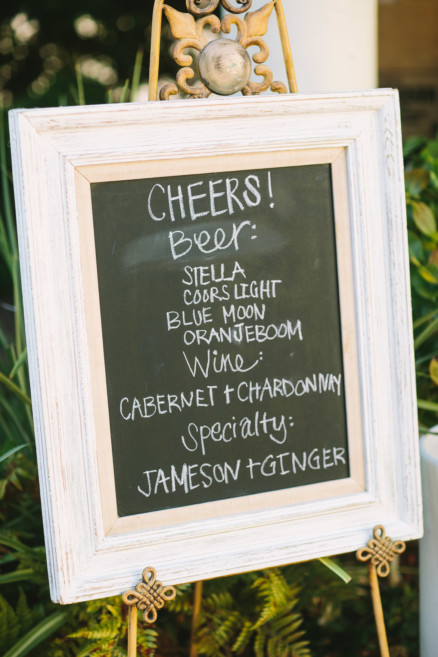 CHEERS!
Beer:
STELLA
COORS LIGHT
BLUE MOON
ORANJEBOOM
Wine:
CABERNET + CHARDONNAY
Specialty:
JAMESON + GINGER